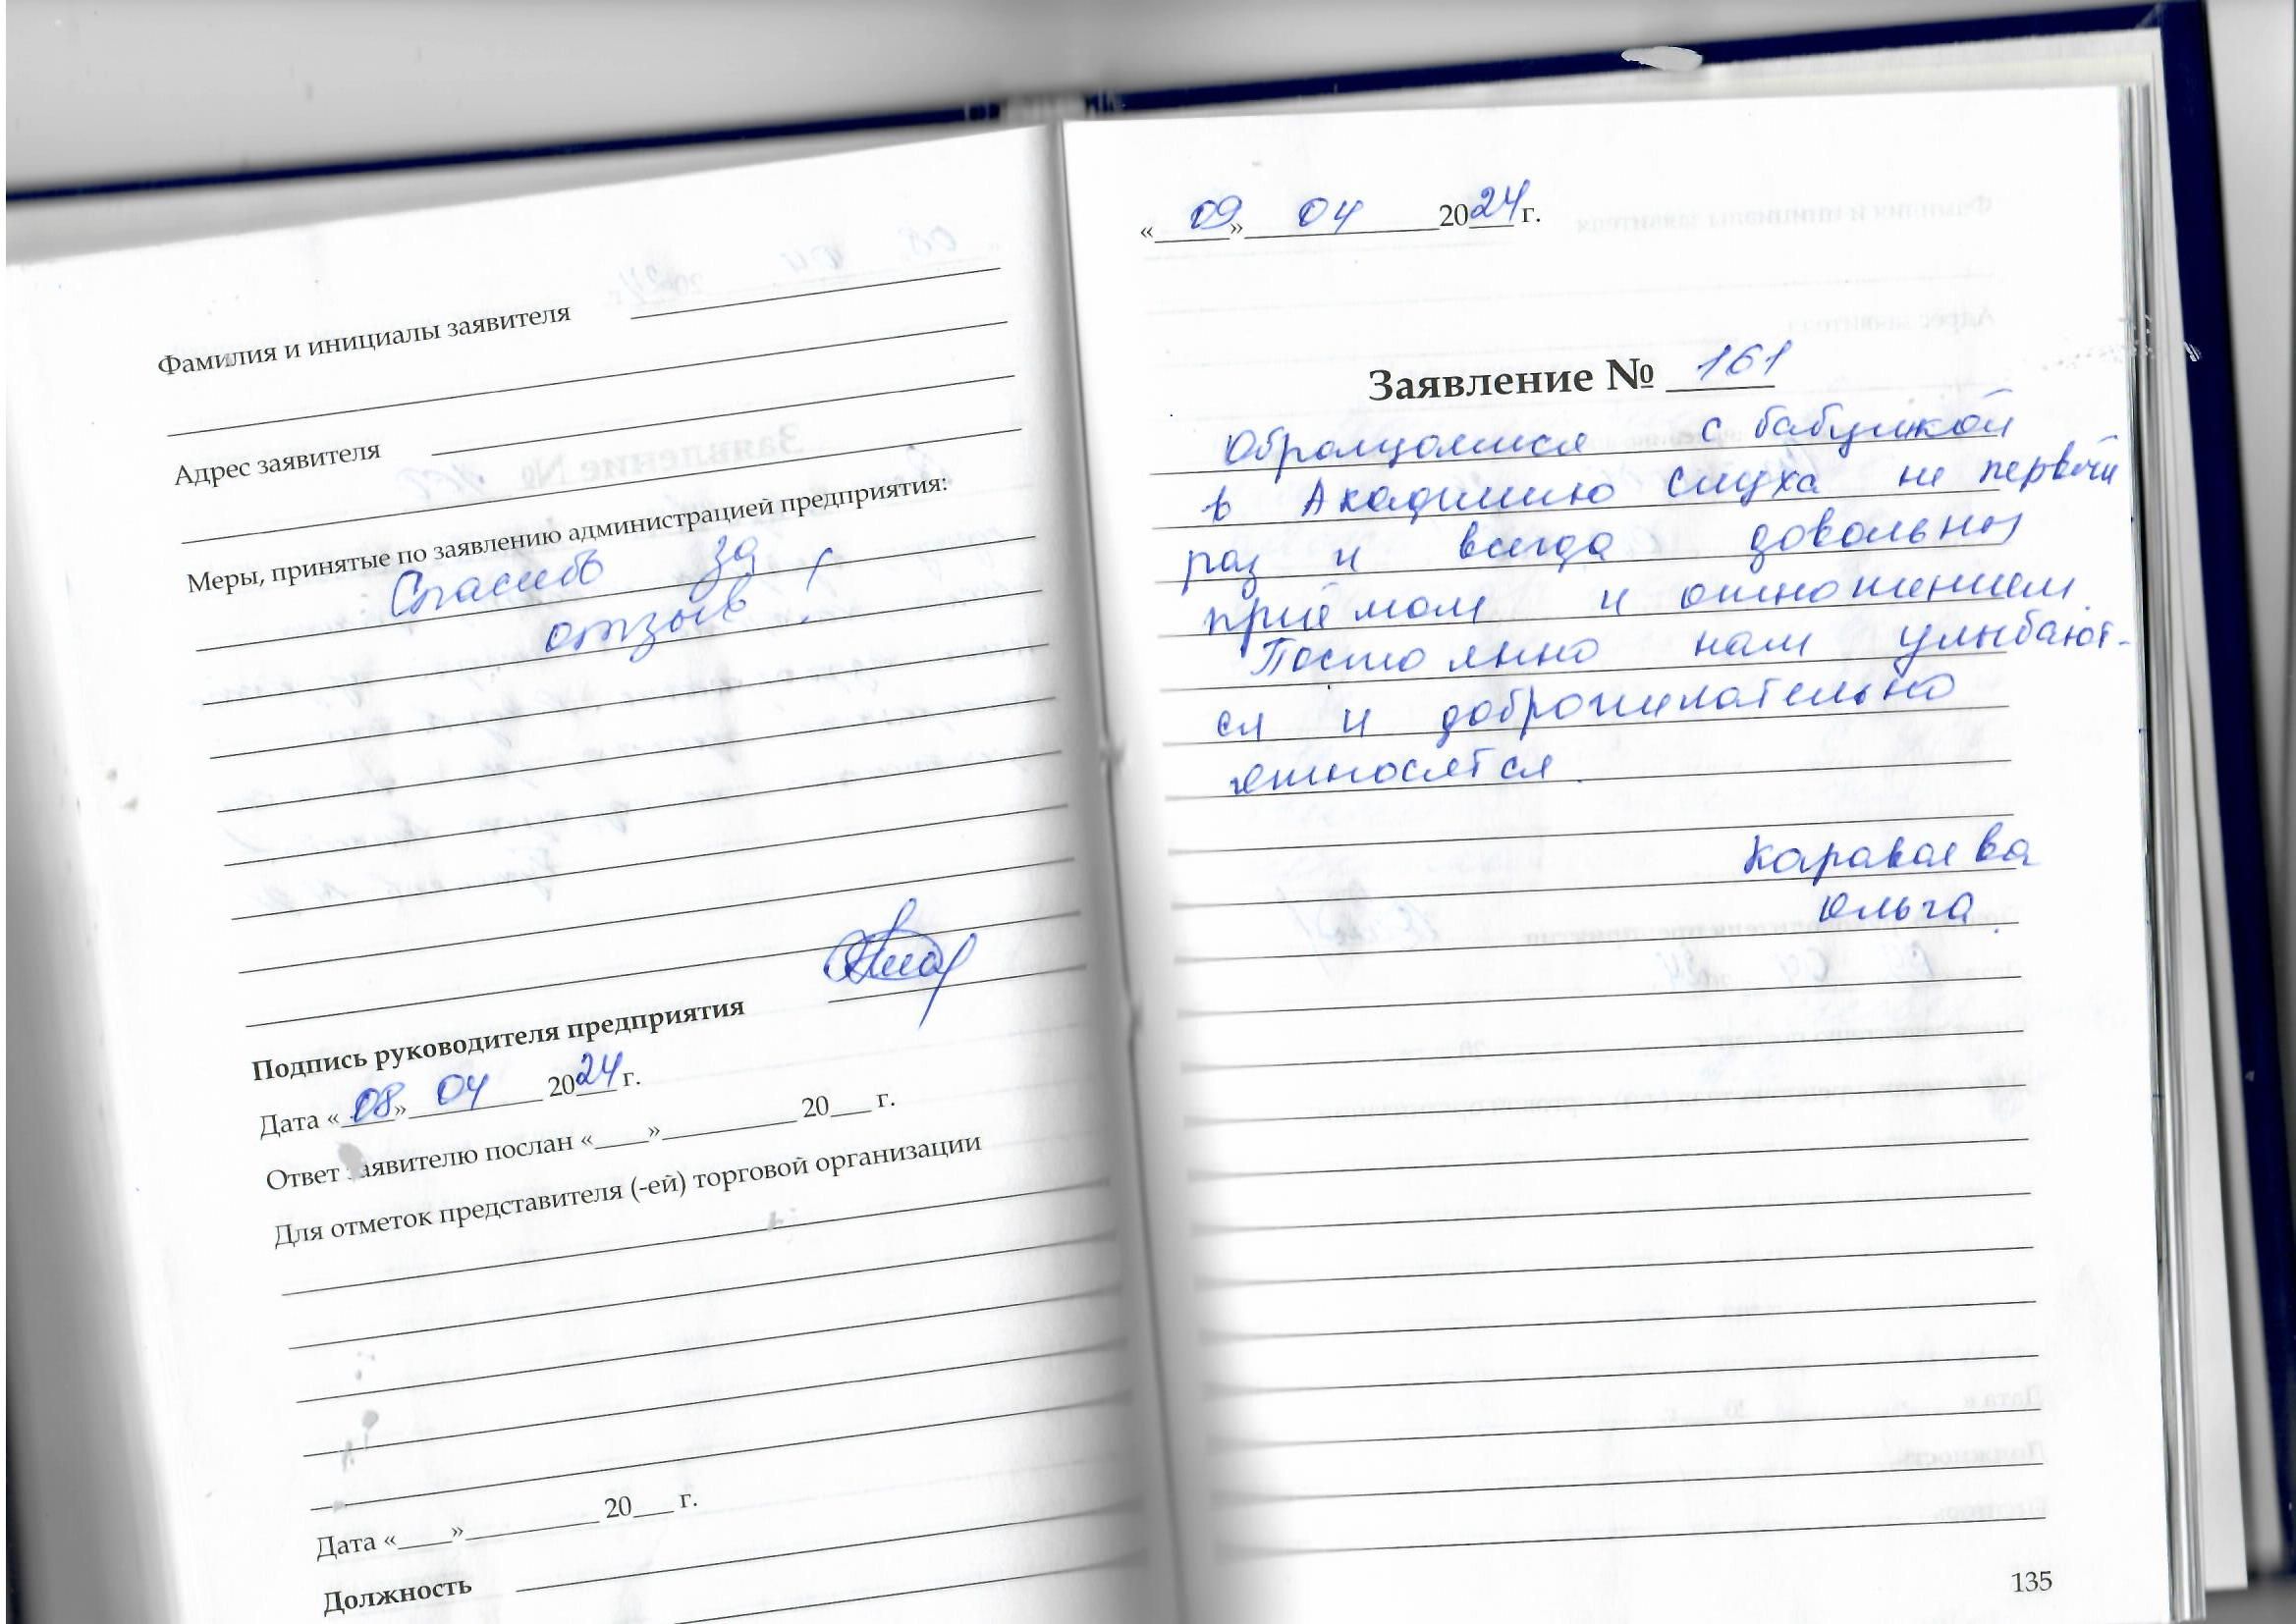 Фамилия и инициалы заявителя
Адрес заявителя
Меры, принятые по заявлению администрацией предприятия:
Спасибо за
отзыв!
Подпись руководителя предприятия
Дата «08» 04 2024 г.
Ответ заявителю послан «____»__________ 20___ г.
Для отметок представителя (-ей) торговой организации
Дата «____»__________ 20___ г.
Должность
«09» 04 2024 г.
Заявление № 161
Обращаемся с бабушкой
в Академию слуха не первый
раз и всегда довольны
приёмом и отношением.
Постоянно нам улыбают-
ся и доброжелательно
относятся.
Караваева
Ольга.
135